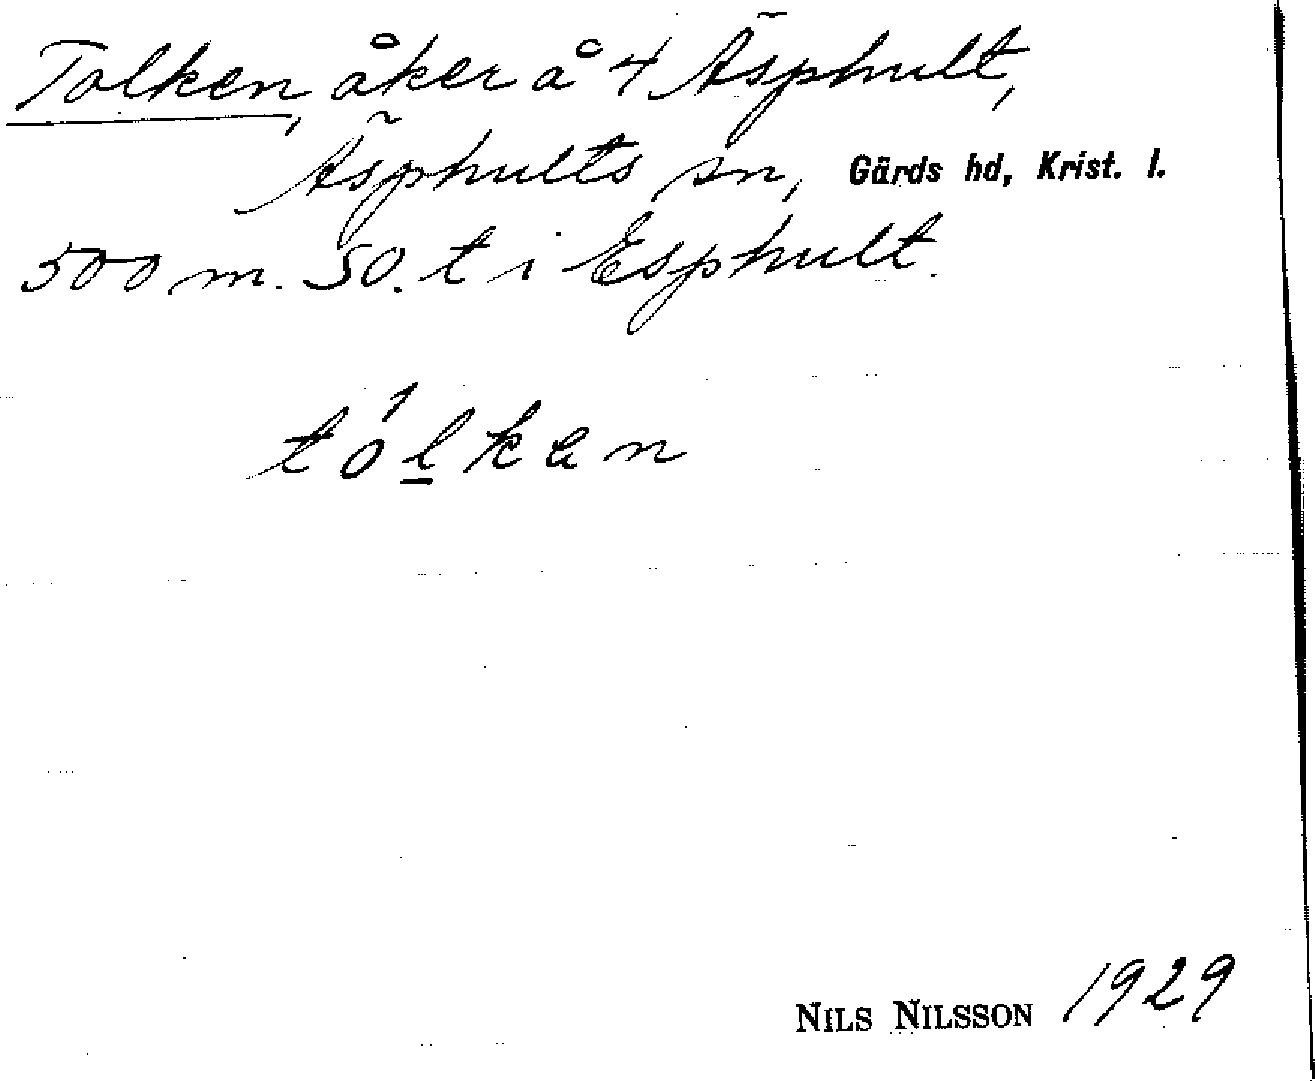 Tolken, åker å 4 Äsphult,
Äsphults sn, Gärds hd, Krist. l.
500 m. SO. t i Esphult.
tólkan
NILS NILSSON 1929